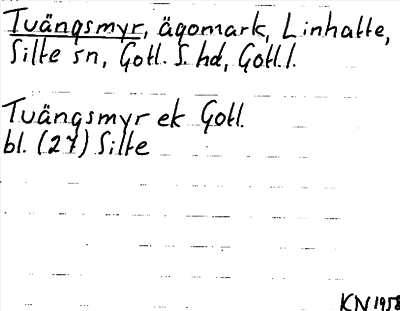 Tvängsmyr, ägomark, Linhatte,
Silte sn, Gotl. S. hd, Gotl. l.
Tvängsmyr ek Gotl.
bl. (27) Silte
KN 1958